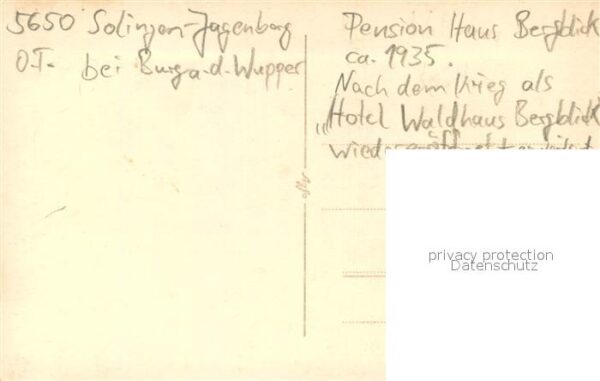 5650 Solingen-Jagenberg
O.T. bei Burg a.d. Wupper
Pension Haus Bergblick
ca. 1935.
Nach dem Krieg als
„Hotel Waldhaus Bergblick"
wieder eröffnet
Agfa
privacy protection
Datenschutz